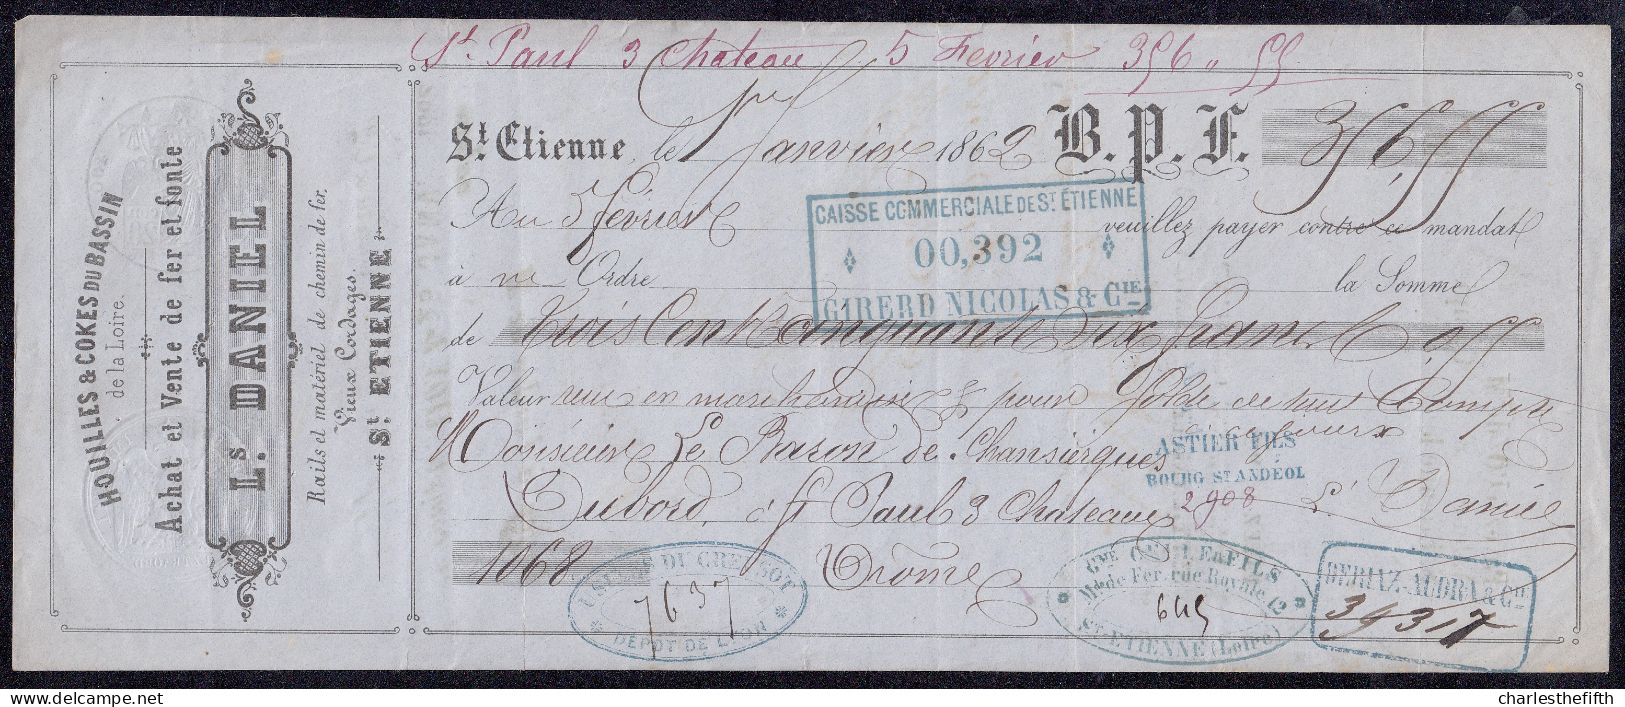 St. Paul 3 Chateau 5 Fevrier 356 " 55
HOUILLES & COKES DU BASSIN
de la Loire.
Achat et Vente de fer et fonte
Ls. DANIEL
Rails et matériel de chemin de fer.
Vieux Cordages.
St. ETIENNE
St. Etienne, le Janvier 1862 B.P.F. 356,55
Au 5 février veuillez payer contre ce mandat
à m Ordre la Somme
de trois Cent Cinquante six francs 55
Valeur en marchandises & pour Solde de tout Compte
Monsieur Le Baron de Chansiergues
Dubord, à St Paul 3 Chateaux
Drôme
1068
Ls Daniel
CAISSE COMMERCIALE DE ST. ÉTIENNE
00,392
GIRERD NICOLAS & CIE
ASTIER FILS
BOURG ST ANDÉOL
2908
USINES DU CREUSOT
7637
DÉPOT DE LYON
Mds de Fer, rue Royale 12
645
ST-ETIENNE (Loire)
& CIE
39317
charlesthefifth